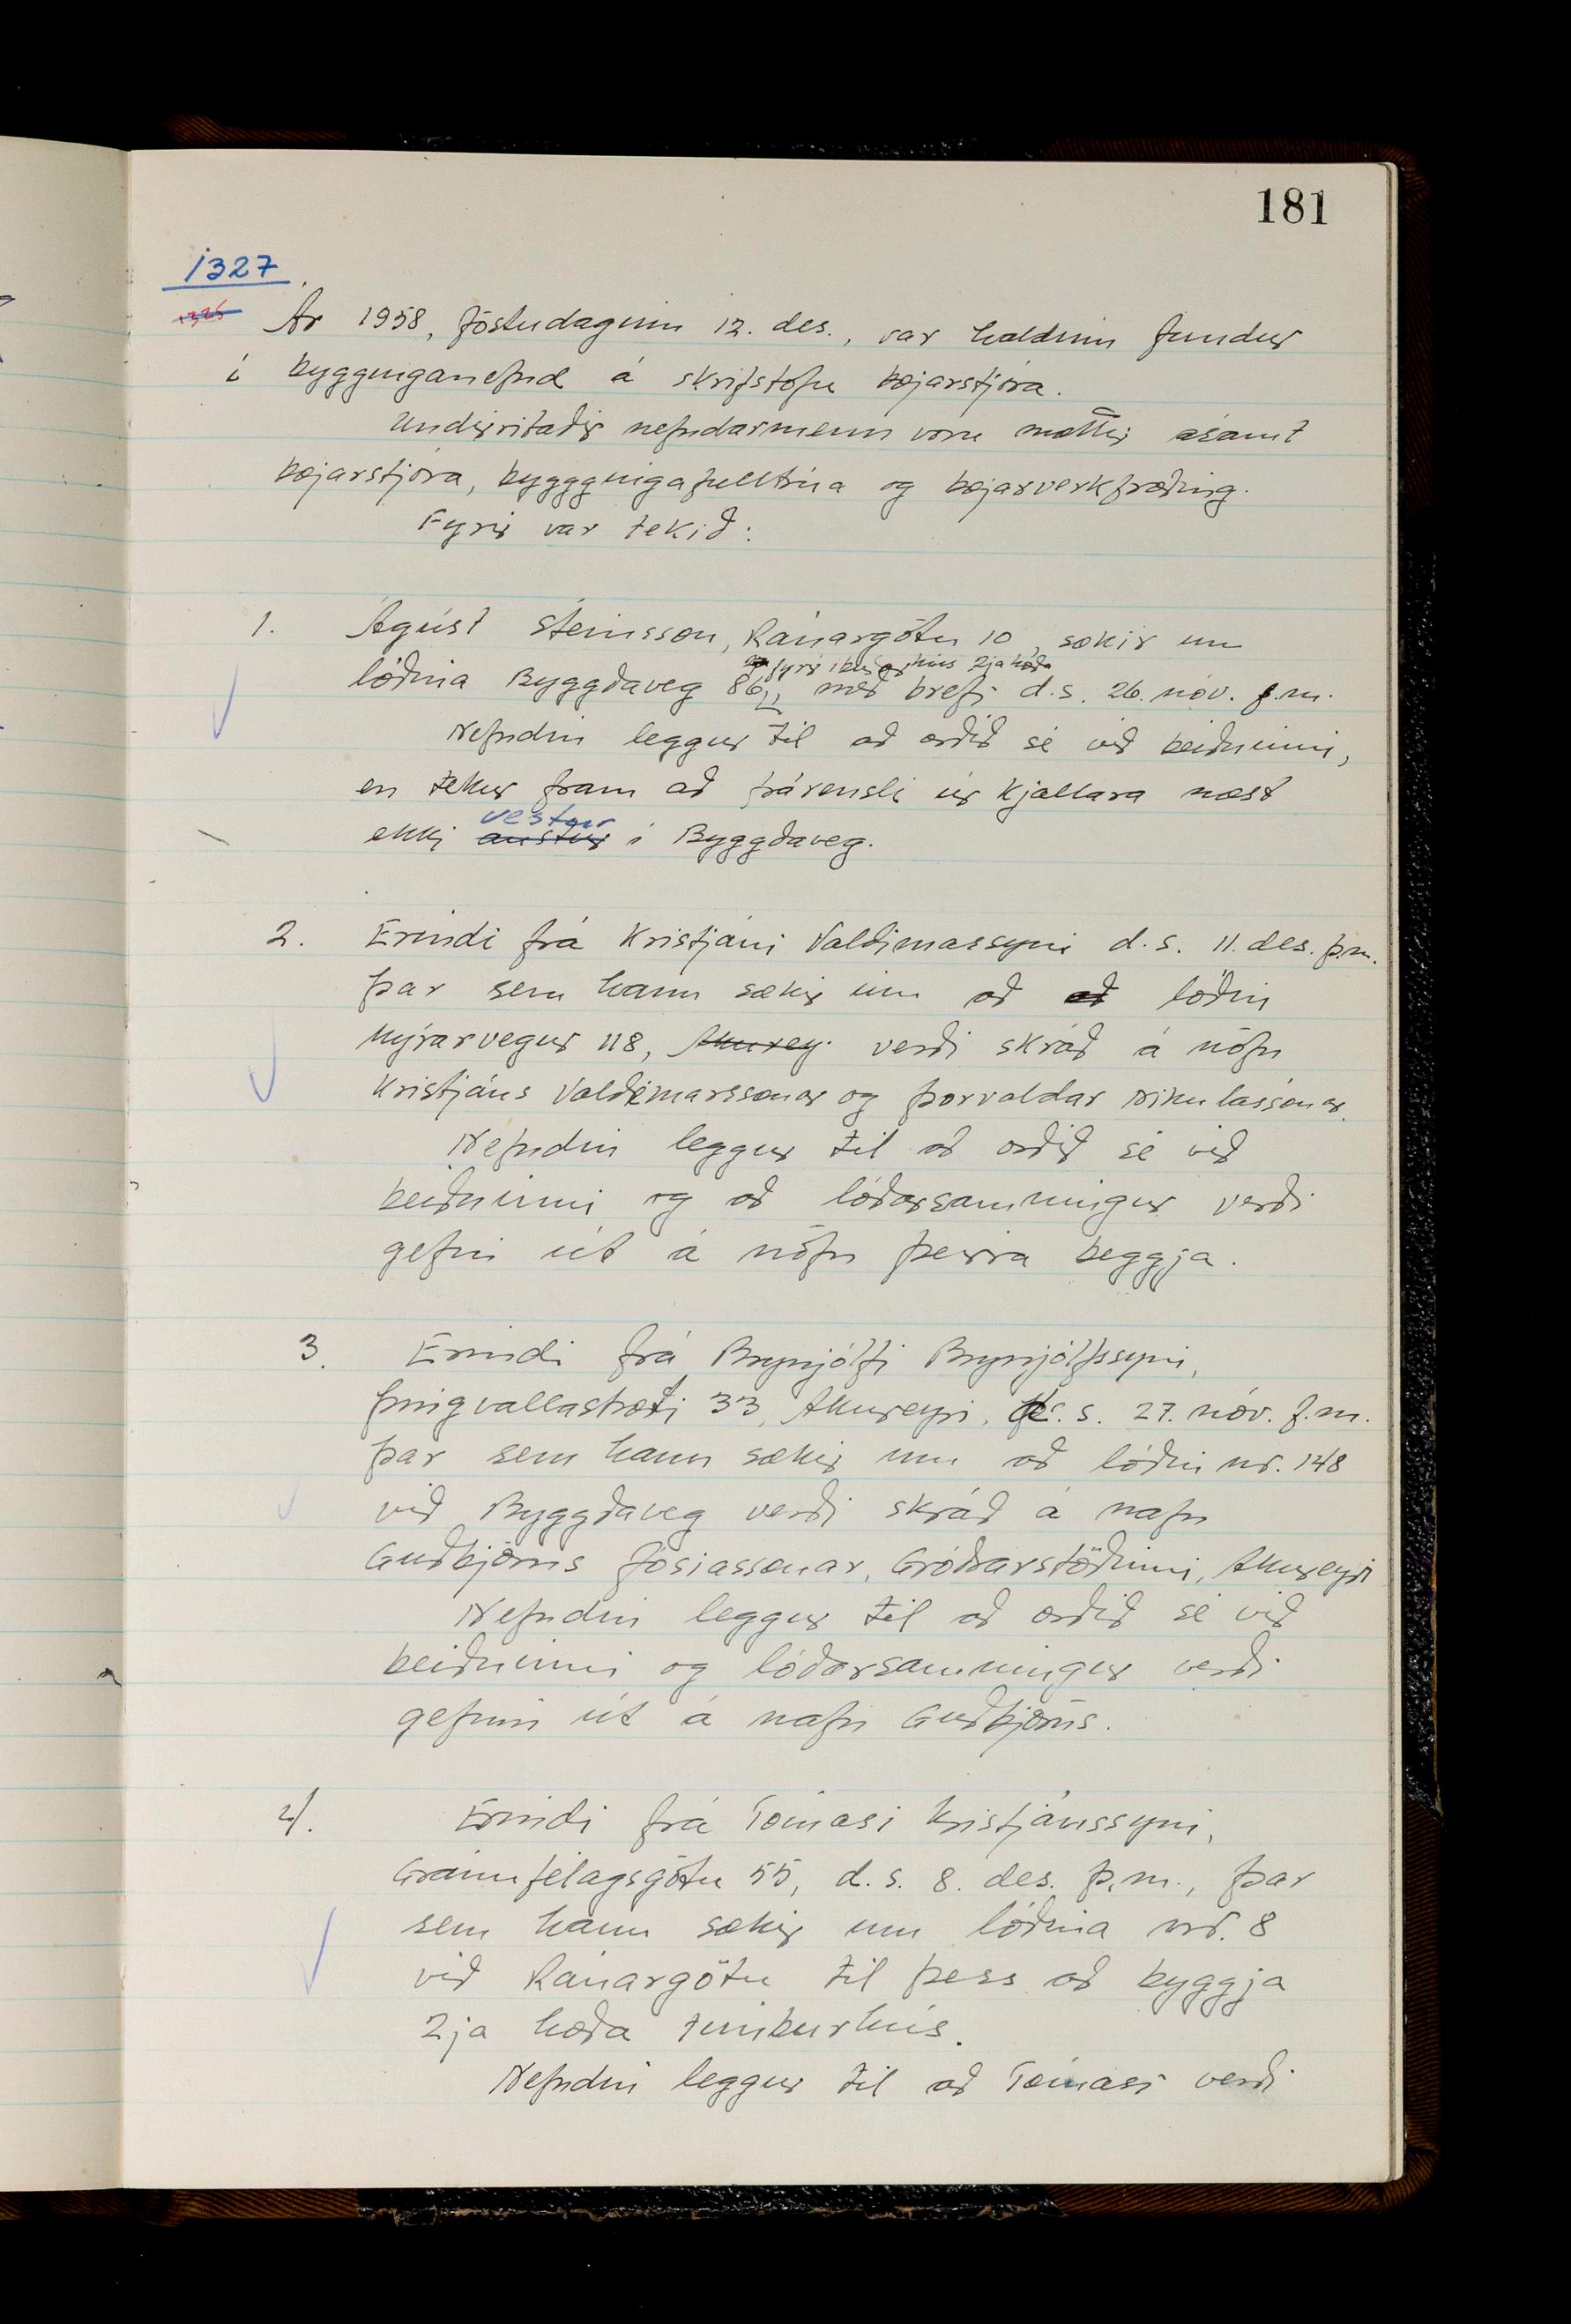 181
1327
1325
Ár 1958, föstudaginn 12. des., var haldinn fundur
í bygginganefnd á skrifstofu bæjarstjóra.
Undirritaðir nefndarmenn voru mættir ásamt
bæjarstjóra, byggginigafulltrúa og bæjarverkfræðing.
Fyrir var tekið:
1. Ágúst Steinsson, Ránargötu 10, sækir um
fyrir íbúðarhús 2ja hæða
lóðina Byggðaveg 86, með bréfi d.s. 26. nóv. f.m.
Nefndin leggur til að orðið sé við beiðninni,
en tekur fram að frárensli úr kjallara næst
vestur
ekki austur í Byggðaveg.
2. Erindi frá Kristjáni Valdimarssyni d.s. 11. des. þ.m.
þar sem hann sækir um að að lóðin
Mýrarvegur 118, Akurey. verði skráð á nöfn
Kristjáns Valdimarssonar og Þorvaldar Nikulássonar.
Nefndin leggur til að orðið sé við
beiðninni og að lóðarsamningur verði
gefin út á nöfn þeirra beggja.
3. Erindi frá Brynjólfi Brynjólfssyni,
Þingvallastræti 33, Akureyri, d.s. 27. nóv. f.m.
þar sem hann sækir um að lóðin nr. 148
við Byggðaveg verði skráð á nafn
Guðbjörns Jósiassonar, Gróðrarstöðinni, Akureyri
Nefndin leggur til að orðið sé við
beiðninni og lóðarsamningur verði
gefinn út á nafn Guðbjörns.
4. Erindi frá Tómasi Kristjánssyni,
Gránufélagsgötu 55, d.s. 8. des. þ.m., þar
sem hann sækir um lóðina nr. 8
við Ránargötu til þess að byggja
2ja hæða timburhús.
Nefndin leggur til að Tómasi verði